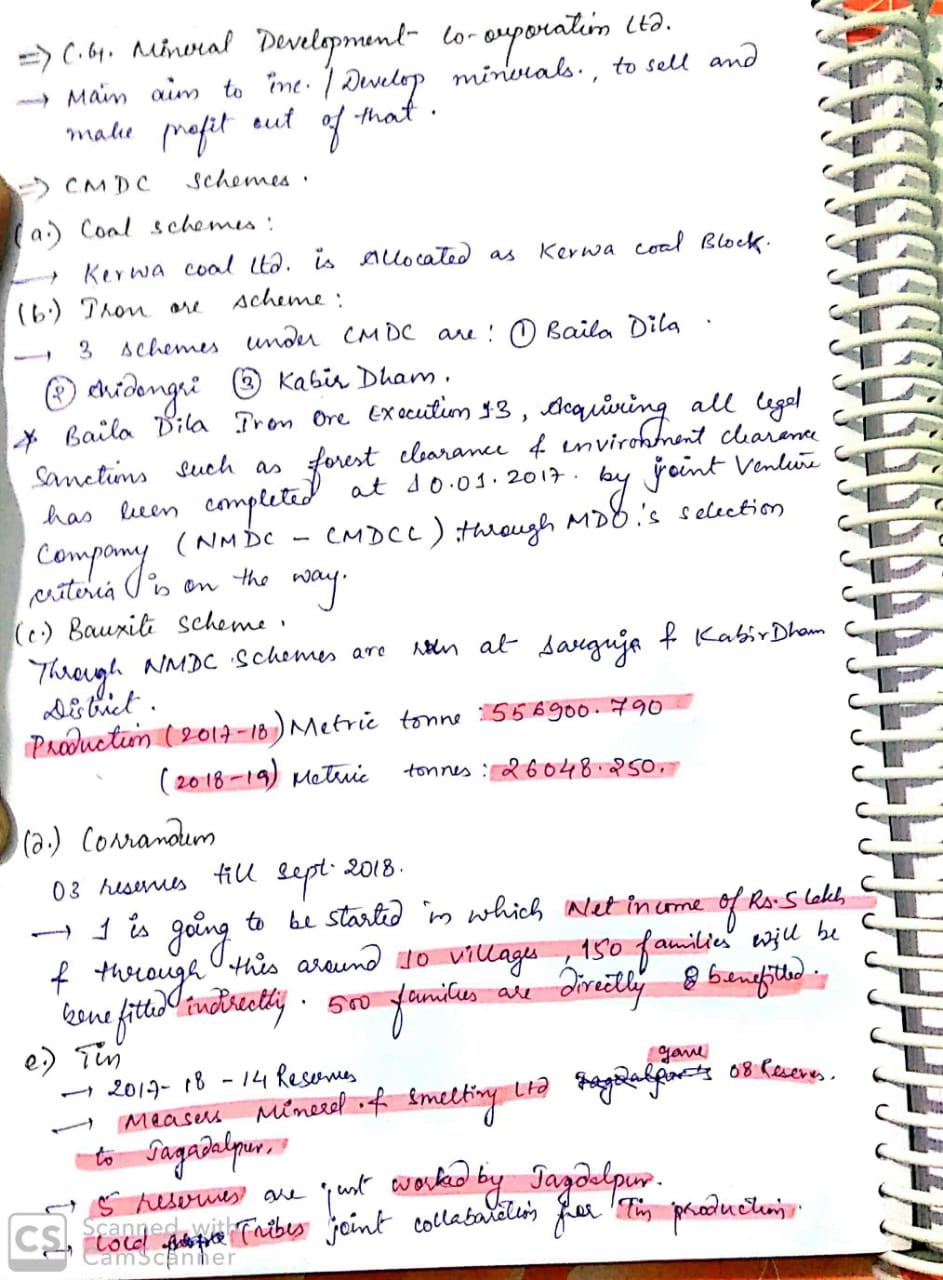 => C.G. Mineral Development Co-orporation Ltd.
→ Main aim to inc. / Develop minerals., to sell and
make profit out of that.
=> CMDC Schemes.
(a.) Coal schemes:
→ Kerwa coal Ltd. is Allocated as Kerwa coal Block.
(b.) Iron ore scheme:
→ 3 schemes under CMDC are: ① Baila Dila.
② Aridongri ③ Kabir Dham.
* Baila Dila Iron Ore Execution 13, Acquiring all legel
Sanctions such as forest clearance & environment clearance
has been completed at 10.01.2017. by joint Venture
Company (NMDC - CMDCL) through MDO's selection
criteria is on the way.
(c.) Bauxite Scheme.
Through NMDC Schemes are run at Sarguja & KabirDham
District.
Production (2017-18) Metric tonne: 556900.790
(2018-19) Metric tonnes: 26048.250.
(d.) Corrandum
03 reserves till Sept. 2018.
→ 1 is going to be started in which Net income of Rs. 5 lakh
& through this around 10 villages, 150 families will be
benefitted indirectly. 500 families are directly benefitted.
e.) Tin
→ 2017-18 - 14 Reserves
gave
→ Measers Mineral & Smelting Ltd 08 Reserves.
to Jagadalpur.
→ 5 reserves are just worked by Jagdalpur.
→ Locd Tribes joint collabaration for Tin production.
CS Scanned with
CamScanner